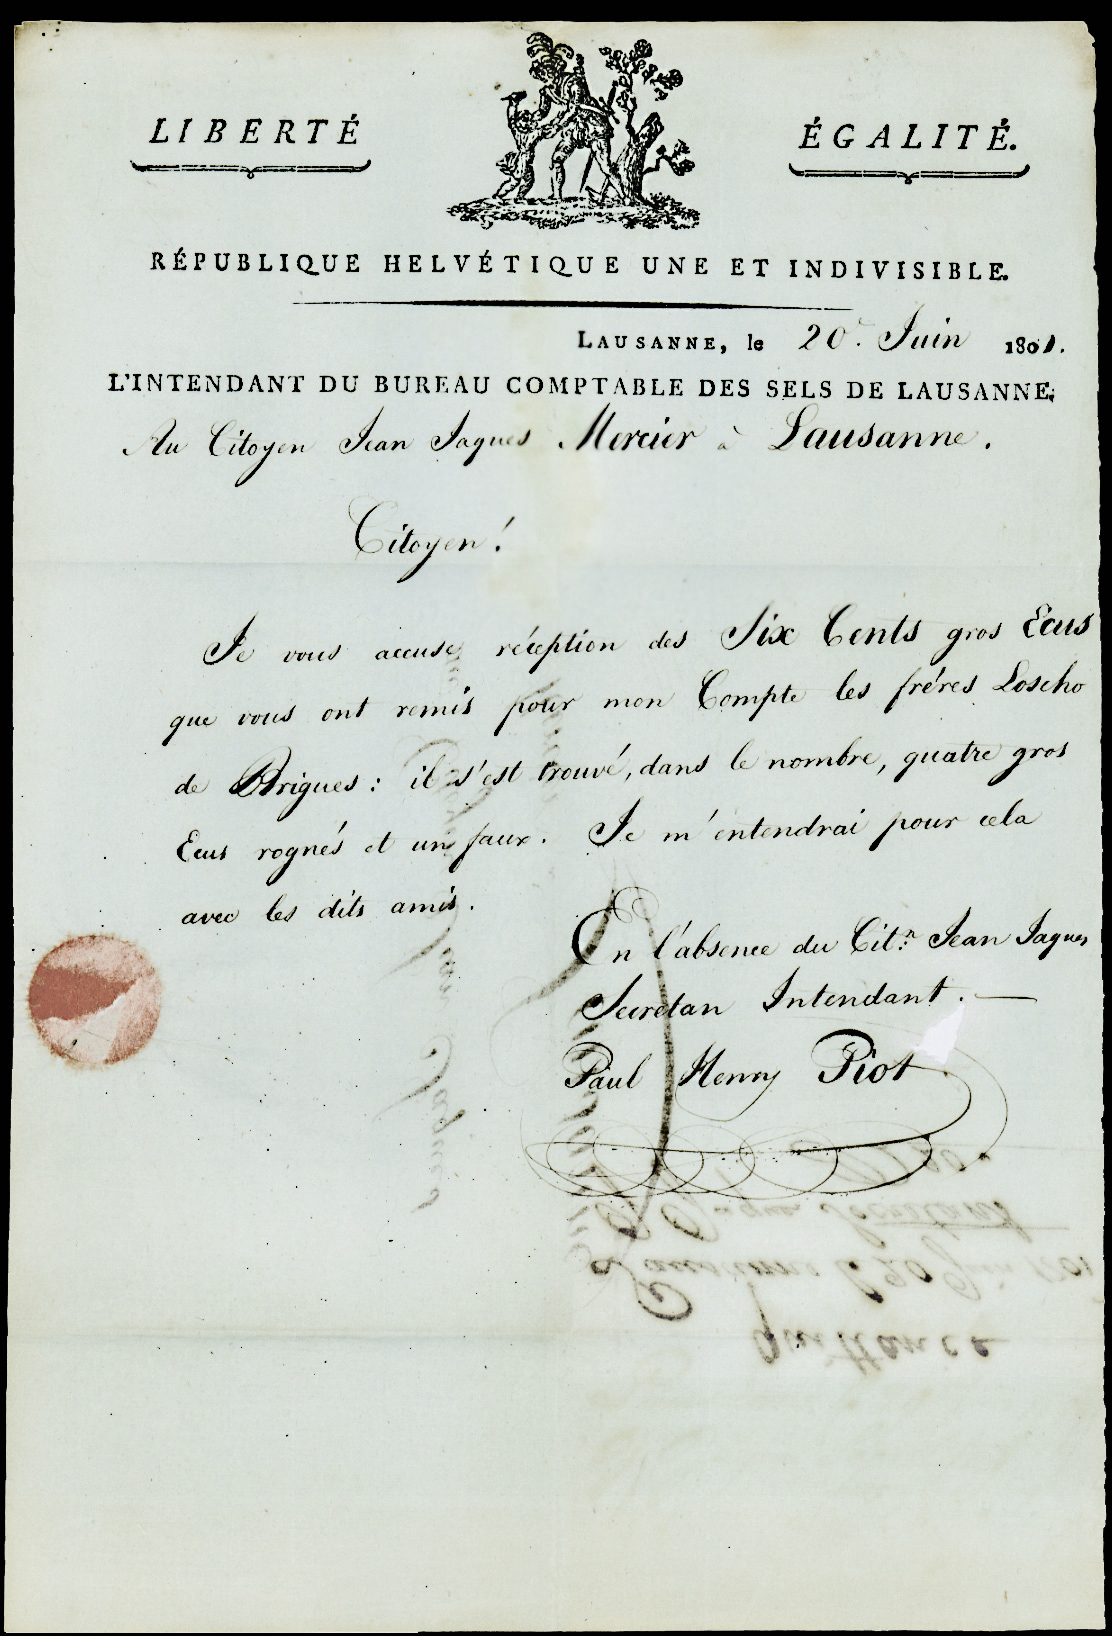 LIBERTÉ
ÉGALITÉ.
RÉPUBLIQUE HELVÉTIQUE UNE ET INDIVISIBLE.
LAUSANNE, le 20.e Juin 1801.
L'INTENDANT DU BUREAU COMPTABLE DES SELS DE LAUSANNE;
Au Citoyen Jean Jaques Mercier à Lausanne.
Citoyen!
Je vous accuse réception des Six Cents gros Ecus
que vous ont remis pour mon Compte les fréres Loscho
de Brigues: il s'est trouvé, dans le nombre, quatre gros
Ecus rognés et un faux. Je m'entendrai pour cela
avec les dits amis.
En l'absence du Cit:n Jean Jaques
Secretan Intendant. —
Paul Henry Piot
Quittance
Lausanne le 20 Juin 1801